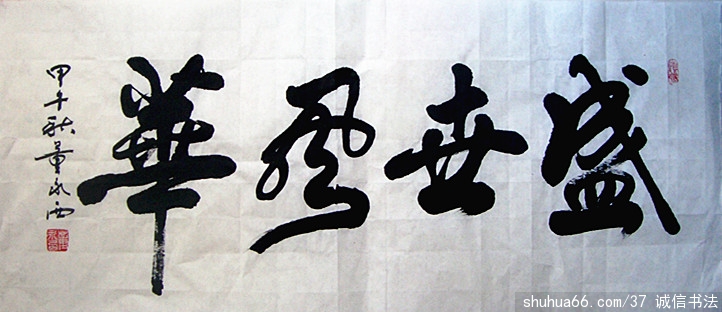 盛世风華
甲午秋董永西
shuhua66.com/37 诚信书法